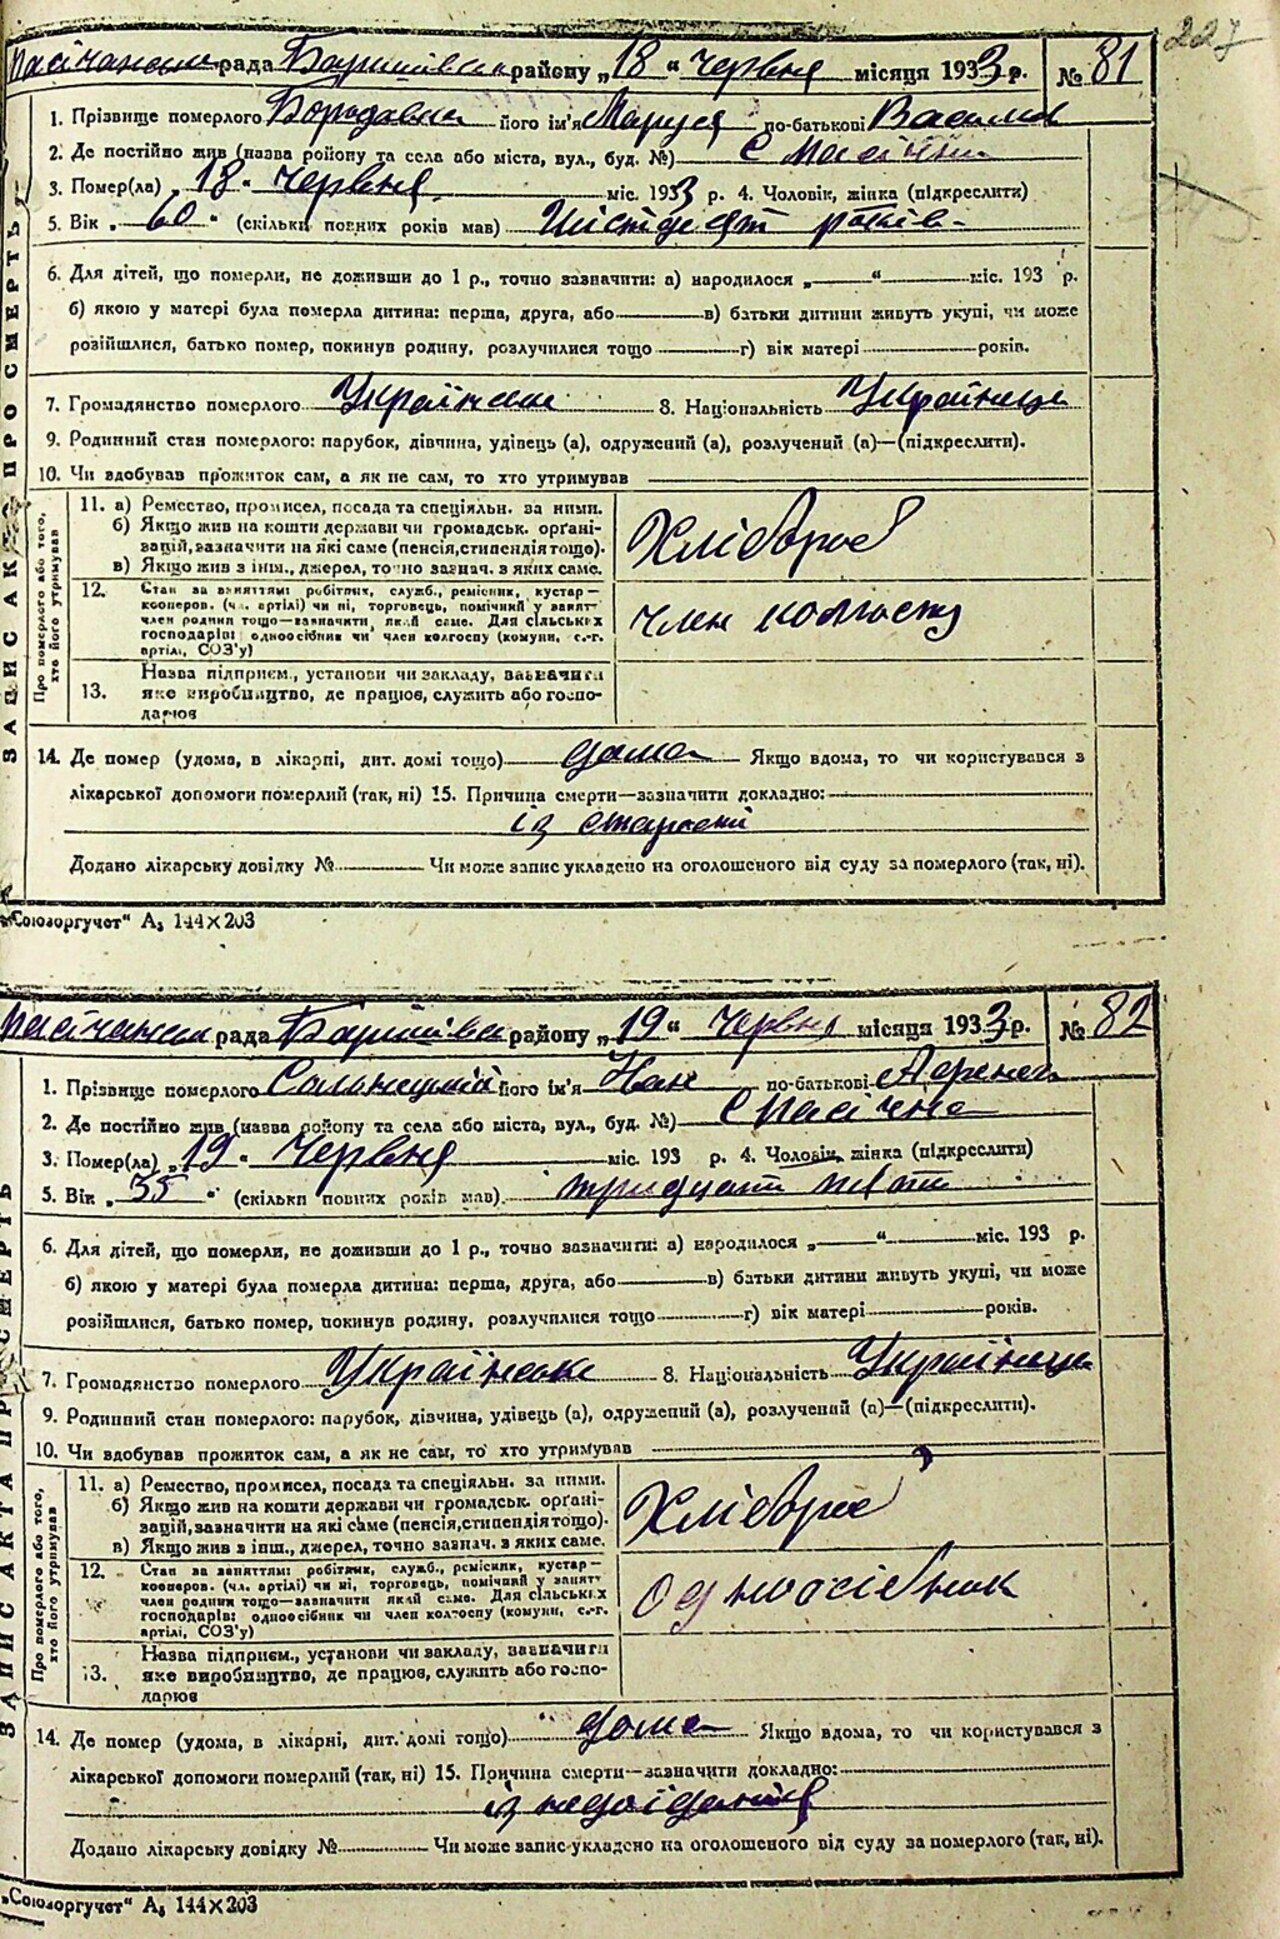 227
Пасічанська рада Баришівськ району „18“ червня місяця 1933 р. № 81
1. Прізвище померлого Бородавка його ім'я Маруся по-батькові Васильов
2. Де постійно жив (назва району та села або міста, вул., буд. №) с Пасічна
3. Помер(ла) „18“ червня міс. 1933 р. 4. Чоловік, жінка (підкреслити)
5. Вік „60“ (скільки повних років мав) Шістдесят років
6. Для дітей, що померли, не доживши до 1 р., точно зазначити: а) народилося „ “ міс. 193 р.
б) якою у матері була померла дитина: перша, друга, або в) батьки дитини живуть укупі, чи може
розійшлися, батько помер, покинув родину, розлучилися тощо г) вік матері років.
7. Громадянство померлого Українське 8. Національність Українець
9. Родинний стан померлого: парубок, дівчина, удівець (а), одружений (а), розлучений (а)—(підкреслити).
10. Чи здобував прожиток сам, а як не сам, то хто утримував
ЗАПИС АКТА ПРО СМЕРТЬ
Про померлого або того, хто його утримував
11. а) Ремество, промисел, посада та спеціяльн. за ними.
б) Якщо жив на кошти держави чи громадськ. орґані-
зацій, зазначити на які саме (пенсія, стипендія тощо).
в) Якщо жив з інш., джерел, точно зазнач. з яких саме.
Хлібороб
12. Стан за заняттям: робітник, служб., ремісник, кустар—
кооперов. (чл. артілі) чи ні, торговець, помічний у занят-
член родини тощо—зазначити який саме. Для сільських
господарів: одноосібник чи член колгоспу (комуни, с.-г.
артілі, СОЗ'у)
член колгоспу
13. Назва підприєм., установи чи закладу, зазначити
яке виробництво, де працює, служить або госпо-
дарює
14. Де помер (удома, в лікарні, дит. домі тощо) дома Якщо вдома, то чи користувався з
лікарської допомоги померлий (так, ні) 15. Причина смерти—зазначити докладно:
із старості
Додано лікарську довідку № Чи може запис укладено на оголошеного від суду за померлого (так, ні).
„Союзоргучет“ А₅ 144×203
Пасічанська рада Баришівськ району „19“ червня місяця 1933 р. № 82
1. Прізвище померлого його ім'я Іван по-батькові
2. Де постійно жив (назва району та села або міста, вул., буд. №) с Пасічна
3. Помер(ла) „19“ Червня міс. 193 р. 4. Чоловік, жінка (підкреслити)
5. Вік „35“ (скільки повних років мав) тридцать пять
6. Для дітей, що померли, не доживши до 1 р., точно зазначити: а) народилося „ “ міс. 193 р.
б) якою у матері була померла дитина: перша, друга, або в) батьки дитини живуть укупі, чи може
розійшлися, батько помер, покинув родину, розлучилися тощо г) вік матері років.
7. Громадянство померлого Українське 8. Національність Українець
9. Родинний стан померлого: парубок, дівчина, удівець (а), одружений (а), розлучений (а)—(підкреслити).
10. Чи здобував прожиток сам, а як не сам, то хто утримував
ЗАПИС АКТА ПРО СМЕРТЬ
Про померлого або того, хто його утримував
11. а) Ремество, промисел, посада та спеціяльн. за ними.
б) Якщо жив на кошти держави чи громадськ. орґані-
зацій, зазначити на які саме (пенсія, стипендія тощо).
в) Якщо жив з інш., джерел, точно зазнач. з яких саме.
Хлібороб
12. Стан за заняттям: робітник, служб., ремісник, кустар—
кооперов. (чл. артілі) чи ні, торговець, помічний у занят-
член родини тощо—зазначити який саме. Для сільських
господарів: одноосібник чи член колгоспу (комуни, с.-г.
артілі, СОЗ'у)
одноосібник
13. Назва підприєм., установи чи закладу, зазначити
яке виробництво, де працює, служить або госпо-
дарює
14. Де помер (удома, в лікарні, дит. домі тощо) дома Якщо вдома, то чи користувався з
лікарської допомоги померлий (так, ні) 15. Причина смерти—зазначити докладно:
із недоїдання
Додано лікарську довідку № Чи може запис укладено на оголошеного від суду за померлого (так, ні).
„Союзоргучет“ А₅ 144×203